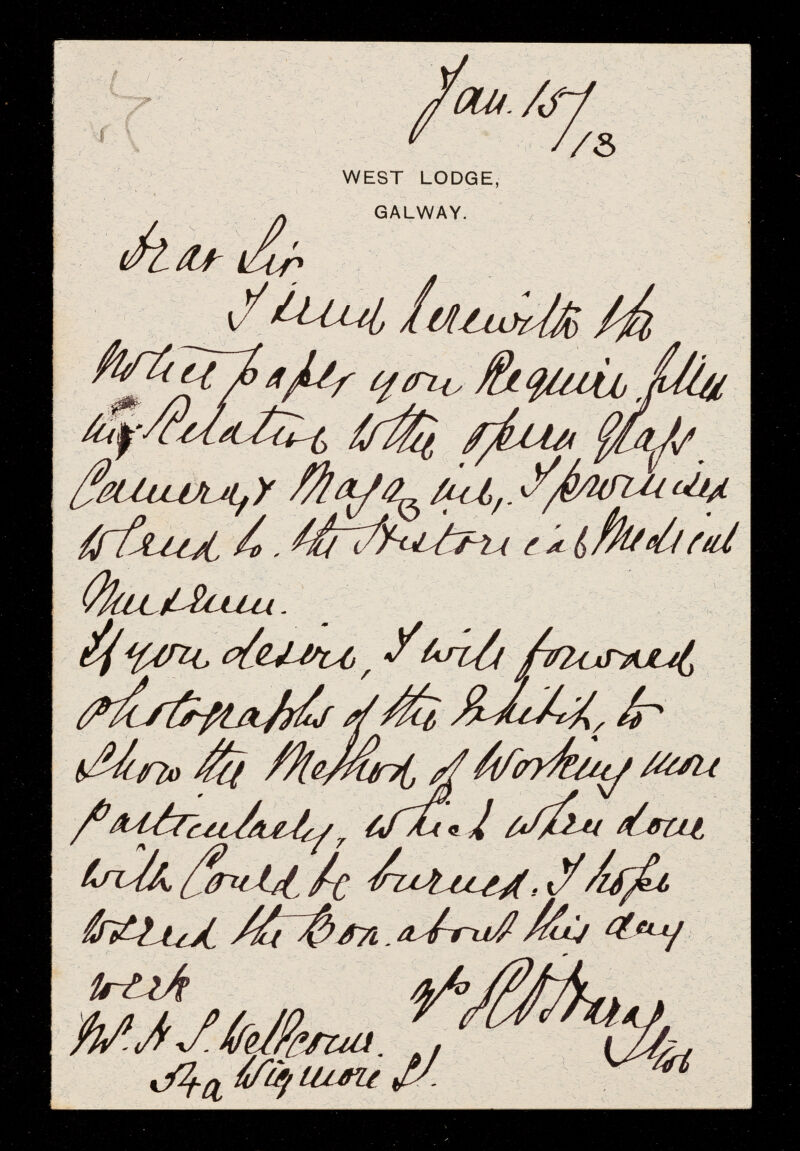 Jan. 15/13
WEST LODGE,
GALWAY.
Dear Sir
I send herewith the
Notice paper you Require filled
in, Relative to the opera glass
Camera, & Magazine, I promised
to send to the Historical Medical
Museum.
If you desire, I will forward
photographs of the Exhibit, to
Show the Method of Working more
Particularly, which when done
with Could be burned. I hope
to send the Box about this day
week
R O'Hara
Mr. H S. Wellcome.
54a Wigmore St.